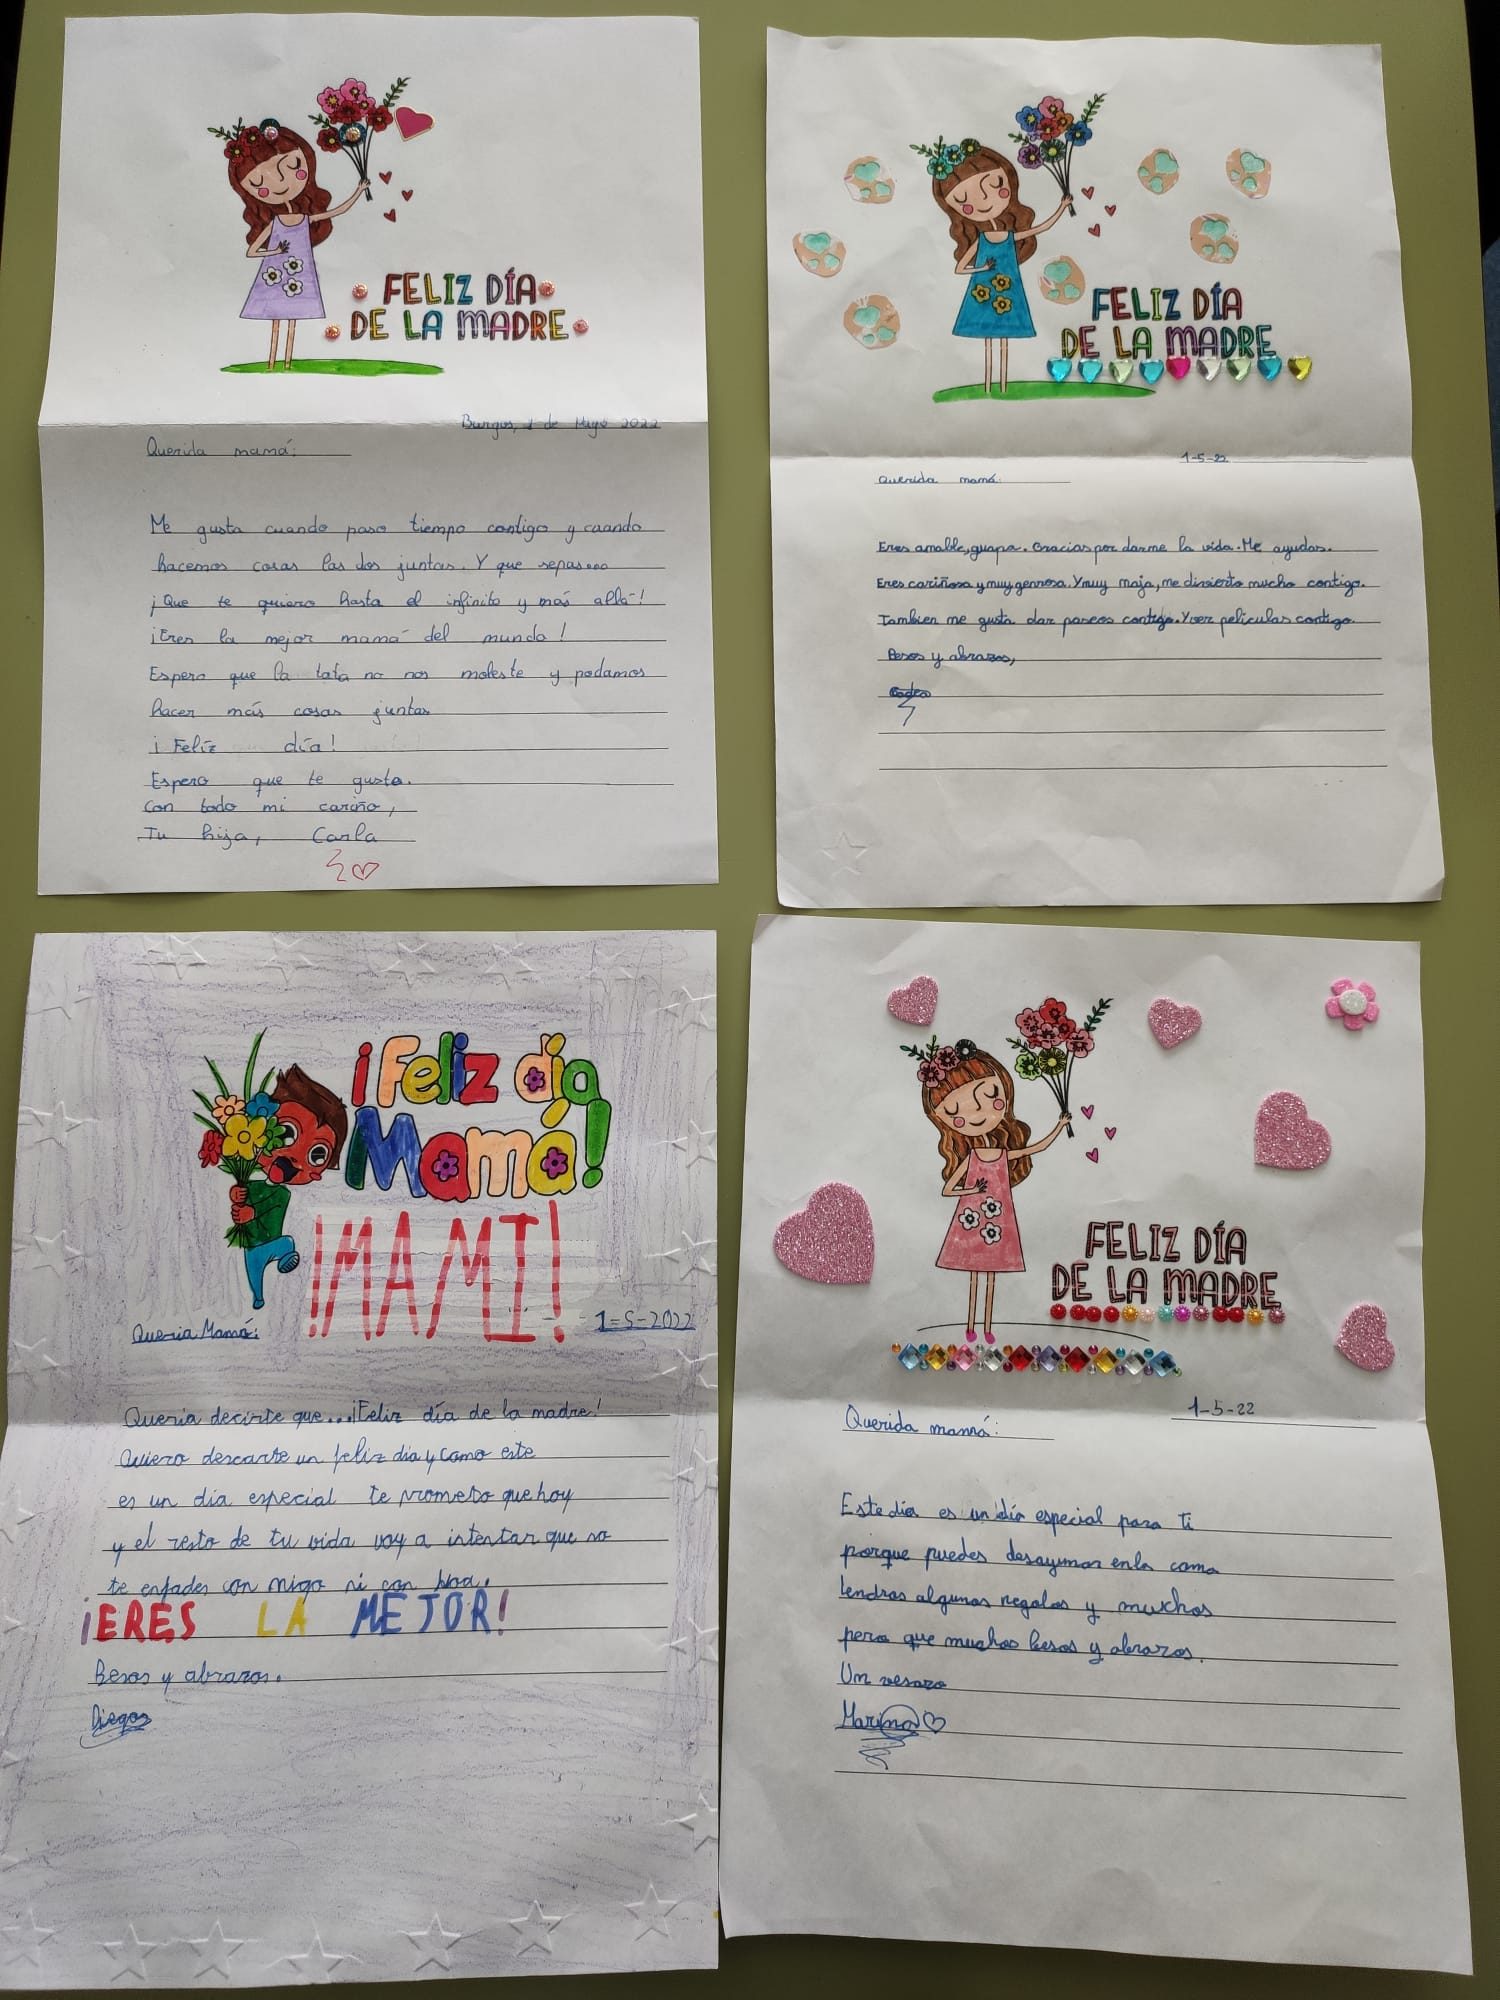 FELIZ DÍA
DE LA MADRE
Burgos, 1 de Mayo 2022
Querida mamá:
Me gusta cuando paso tiempo contigo y cuando
hacemos cosas las dos juntas. Y que sepas...
¡Que te quiero hasta el infinito y más allá!
¡Eres la mejor mamá del mundo!
Espero que la tata no nos moleste y podamos
hacer más cosas juntas
¡Feliz día!
Espero que te guste.
Con todo mi cariño,
Tu hija, Carla
FELIZ DÍA
DE LA MADRE
1-5-22
Querida mamá:
Eres amable, guapa. Gracias por darme la vida. Me ayudas.
Eres cariñosa y muy genrosa. Y muy maja, me divierto mucho contigo.
Tambien me gusta dar paseos contigo. Y ver peliculas contigo.
Besos y abrazos,
¡Feliz día
Mamá!
¡MAMI!
1-5-2022
Queria Mamá:
Queria decirte que...¡Feliz día de la madre!
Quiero descarte un feliz dia y como este
es un dia especial te prometo que hoy
y el resto de tu vida voy a intentar que no
te enfades con migo ni con
¡ERES LA MEJOR!
Besos y abrazos.
Diego
FELIZ DÍA
DE LA MADRE
1-5-22
Querida mamá:
Este día es un día especial para ti
porque puedes desayunar en la cama
tendras algunos regalos y muchos
pero que muchos besos y abrazos.
Un vesazo
Marina